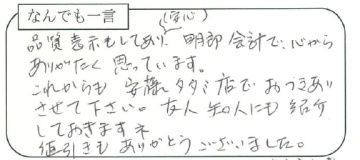 なんでも一言
(安心)
品質表示もしてあり、明朗会計で、心から
ありがたく思っています。
これからも安藤タタミ店でおつきあい
させて下さい。友人知人にも紹介
しておきますネ
値引きもありがとうございました。